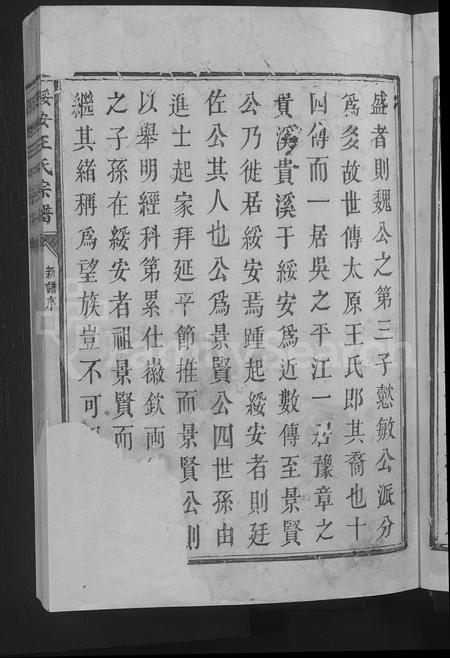 盛者則魏公之第三子懿敏公派分
為多故世傳太原王氏即其裔也十
四傳而一居吳之平江一居豫章之
貴溪貴溪于綏安為近數傳至景賢
公乃徙居綏安焉踵起綏安者則廷
佐公其人也公為景賢公四世孫由
進士起家拜延平節推而景賢公則
以舉明經科第累仕徽欽両
之子孫在綏安者祖景賢而
繼其緒稱為望族豈不可
綏安王氏宗譜
新譜序
FamilySearch